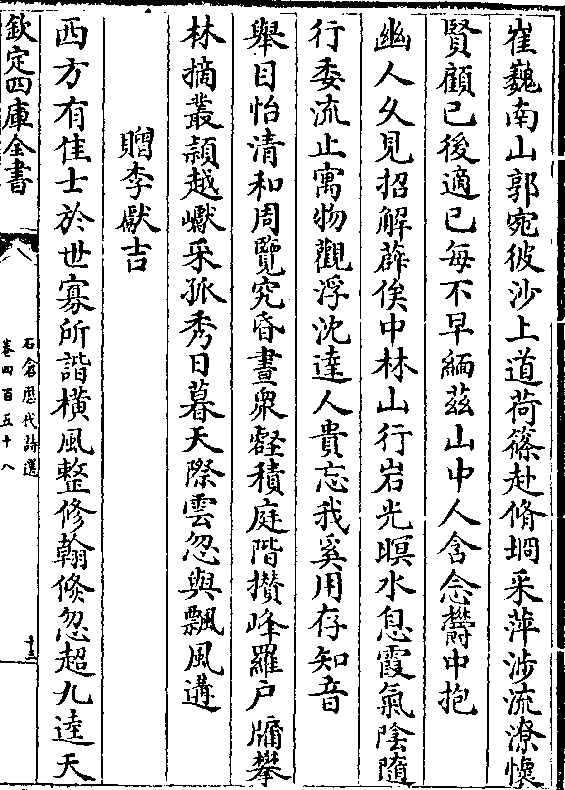 崔巍南山郭宛彼沙上道荷篠赴脩坰采萍涉流潦懷
賢顧已後適已每不早緬茲山中人含念鬱中抱
幽人久見招解薜俟中林山行岩光暝水息霞氣陰隨
行委流止寓物觀浮沈達人貴忘我奚用存知音
舉目怡清和周覽究昏晝衆壑積庭階攢峰羅戶牖攀
林摘叢頴越巘采孤秀日暮天際雲忽與飄風遘
贈李獻吉
西方有佳士於世寡所諧橫風整修翰倐忽超九逵天
欽定四庫全書
石倉歷代詩選
卷四百五十八
十三